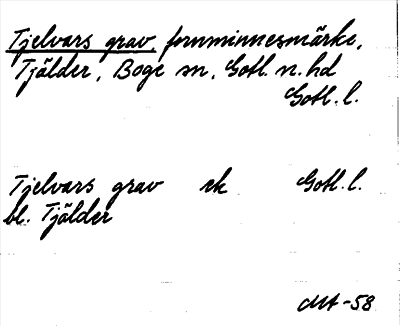 Tjelvars grav, fornminnesmärke,
Tjälder, Boge sn, Gotl. n. hd
Gotl. l.
Tjelvars grav ek Gotl. l.
bl. Tjälder
MA -58